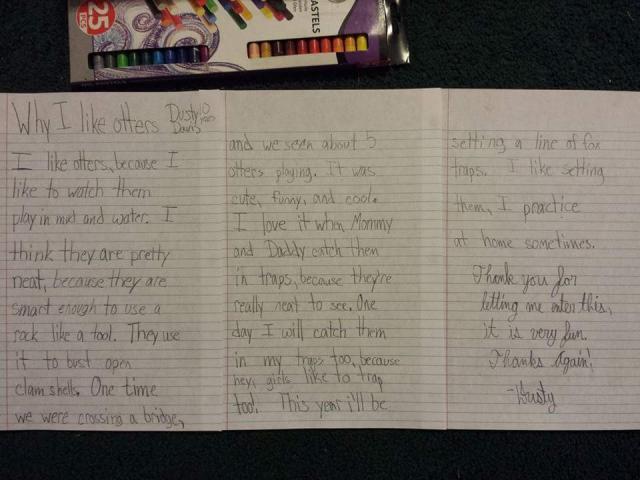 25
PCS
PASTELS
Why I like otters
Dusty
Davis
10
I like otters, because I
like to watch them
play in mud and water. I
think they are pretty
neat, because they are
smart enough to use a
rock like a tool. They use
it to bust open
clam shells. One time
we were crossing a bridge,
and we seen about 5
otters playing. It was
cute, funny, and cool.
I love it when Mommy
and Daddy catch them
in traps, because they're
really neat to see. One
day I will catch them
in my traps too, because
hey, girls like to trap
too!. This year i'll be
setting a line of fox
traps. I like setting
them, I practice
at home sometimes.
Thank you for
letting me enter this,
it is very fun.
Thanks Again!
-Dusty